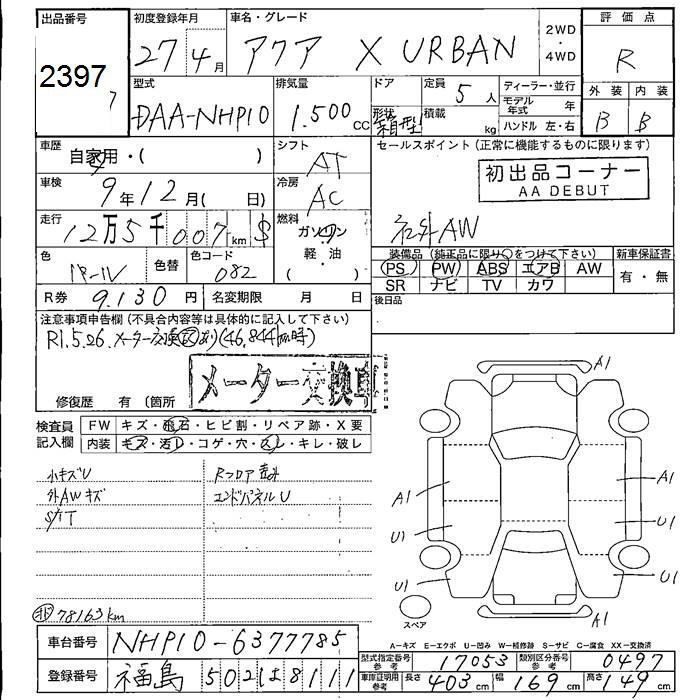 出品番号 初度登録年月 車名・グレード 評価点
2397 27年4月 アクア X URBAN 2WD・4WD R
7
型式 排気量 ドア 定員 5人 ディーラー・並行 外装 内装
DAA-NHP10 1.500cc 形状 箱型 積載 kg モデル年式 年 B B
ハンドル 左・右
車歴 自家用・( ) シフト AT セールスポイント (正常に機能するものに限ります)
初出品コーナー
AA DEBUT
車検 9年12月( 日) 冷房 AC
走行 12万5千007km $ 燃料 ガソリン 社外AW
軽・油
( )
色 パール 色替 色コード 082
装備品 (純正品に限り○をつけて下さい) 新車保証書
PS PW ABS エアB AW 有・無
SR ナビ TV カワ
R券 9.130円 名変期限 月 日 後日品
注意事項申告欄 (不具合内容等は具体的に記入して下さい)
R1.5.26.メーター交換記あり(46,844km時)
メーター交換車
修復歴 有 〔箇所
検査員記入欄 FW キズ・飛石・ヒビ割・リペア跡・X要
内装 キズ・汚レ・コゲ・穴・スレ・キレ・破レ
小キズU Rフロア歪み
外AWキズ エンドパネルU
S/T
78163km
A1
A1
A1
U1
U1
U1
U1
A1
スペア
A-キズ E-エクボ U-凹み W-補修跡 S-サビ C-腐食 XX-交換済
車台番号 NHP10-6377785
型式指定番号 参考 17053 類別区分番号 参考 0497
登録番号 福島 502 は 8111
車庫証明用 参考 長さ 403cm 幅 169cm 高さ 149cm